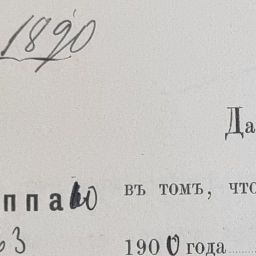 1890
Да
ппа
въ томъ, что
63
1900 года